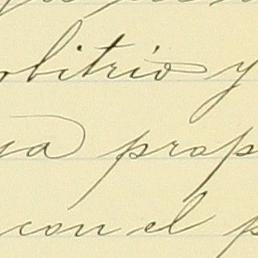 rbitrio y
ya prop
con el p